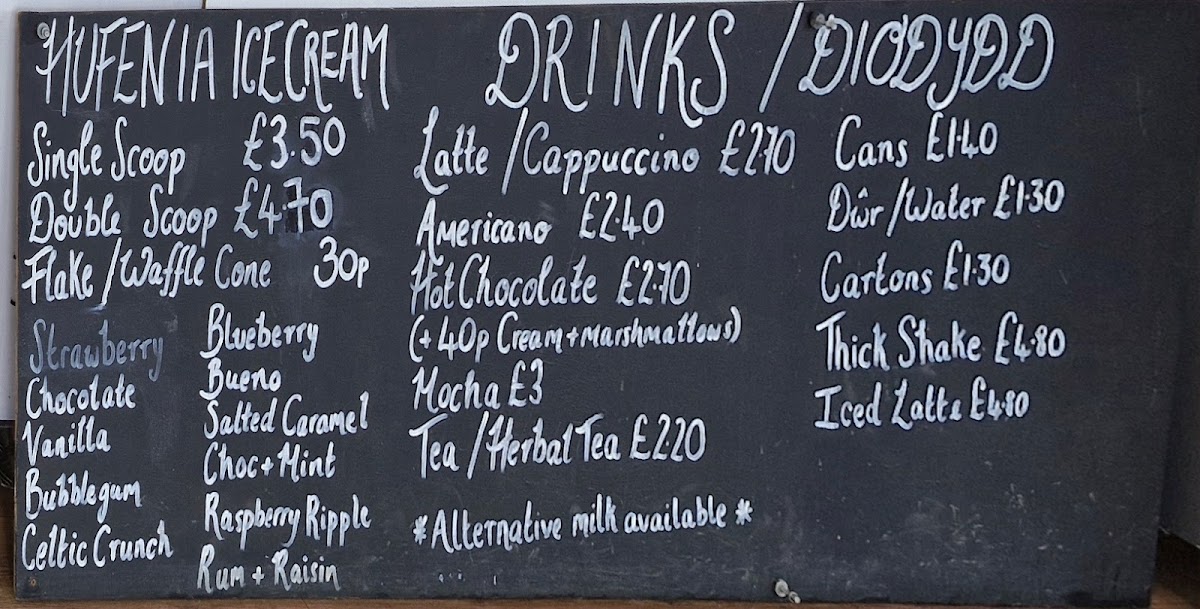 HUFENIA ICECREAM
Single Scoop £3.50
Double Scoop £4.70
Flake / Waffle Cone 30p
Strawberry
Chocolate
Vanilla
Bubblegum
Celtic Crunch
Blueberry
Bueno
Salted Caramel
Choc + Mint
Raspberry Ripple
Rum + Raisin
DRINKS / DIODYDD
Latte / Cappuccino £2.70
Americano £2.40
Hot Chocolate £2.70
(+ 40p Cream + marshmallows)
Mocha £3
Tea / Herbal Tea £2.20
*Alternative milk available *
Cans £1.40
Dŵr / Water £1.30
Cartons £1.30
Thick Shake £4.80
Iced Latte £4.80